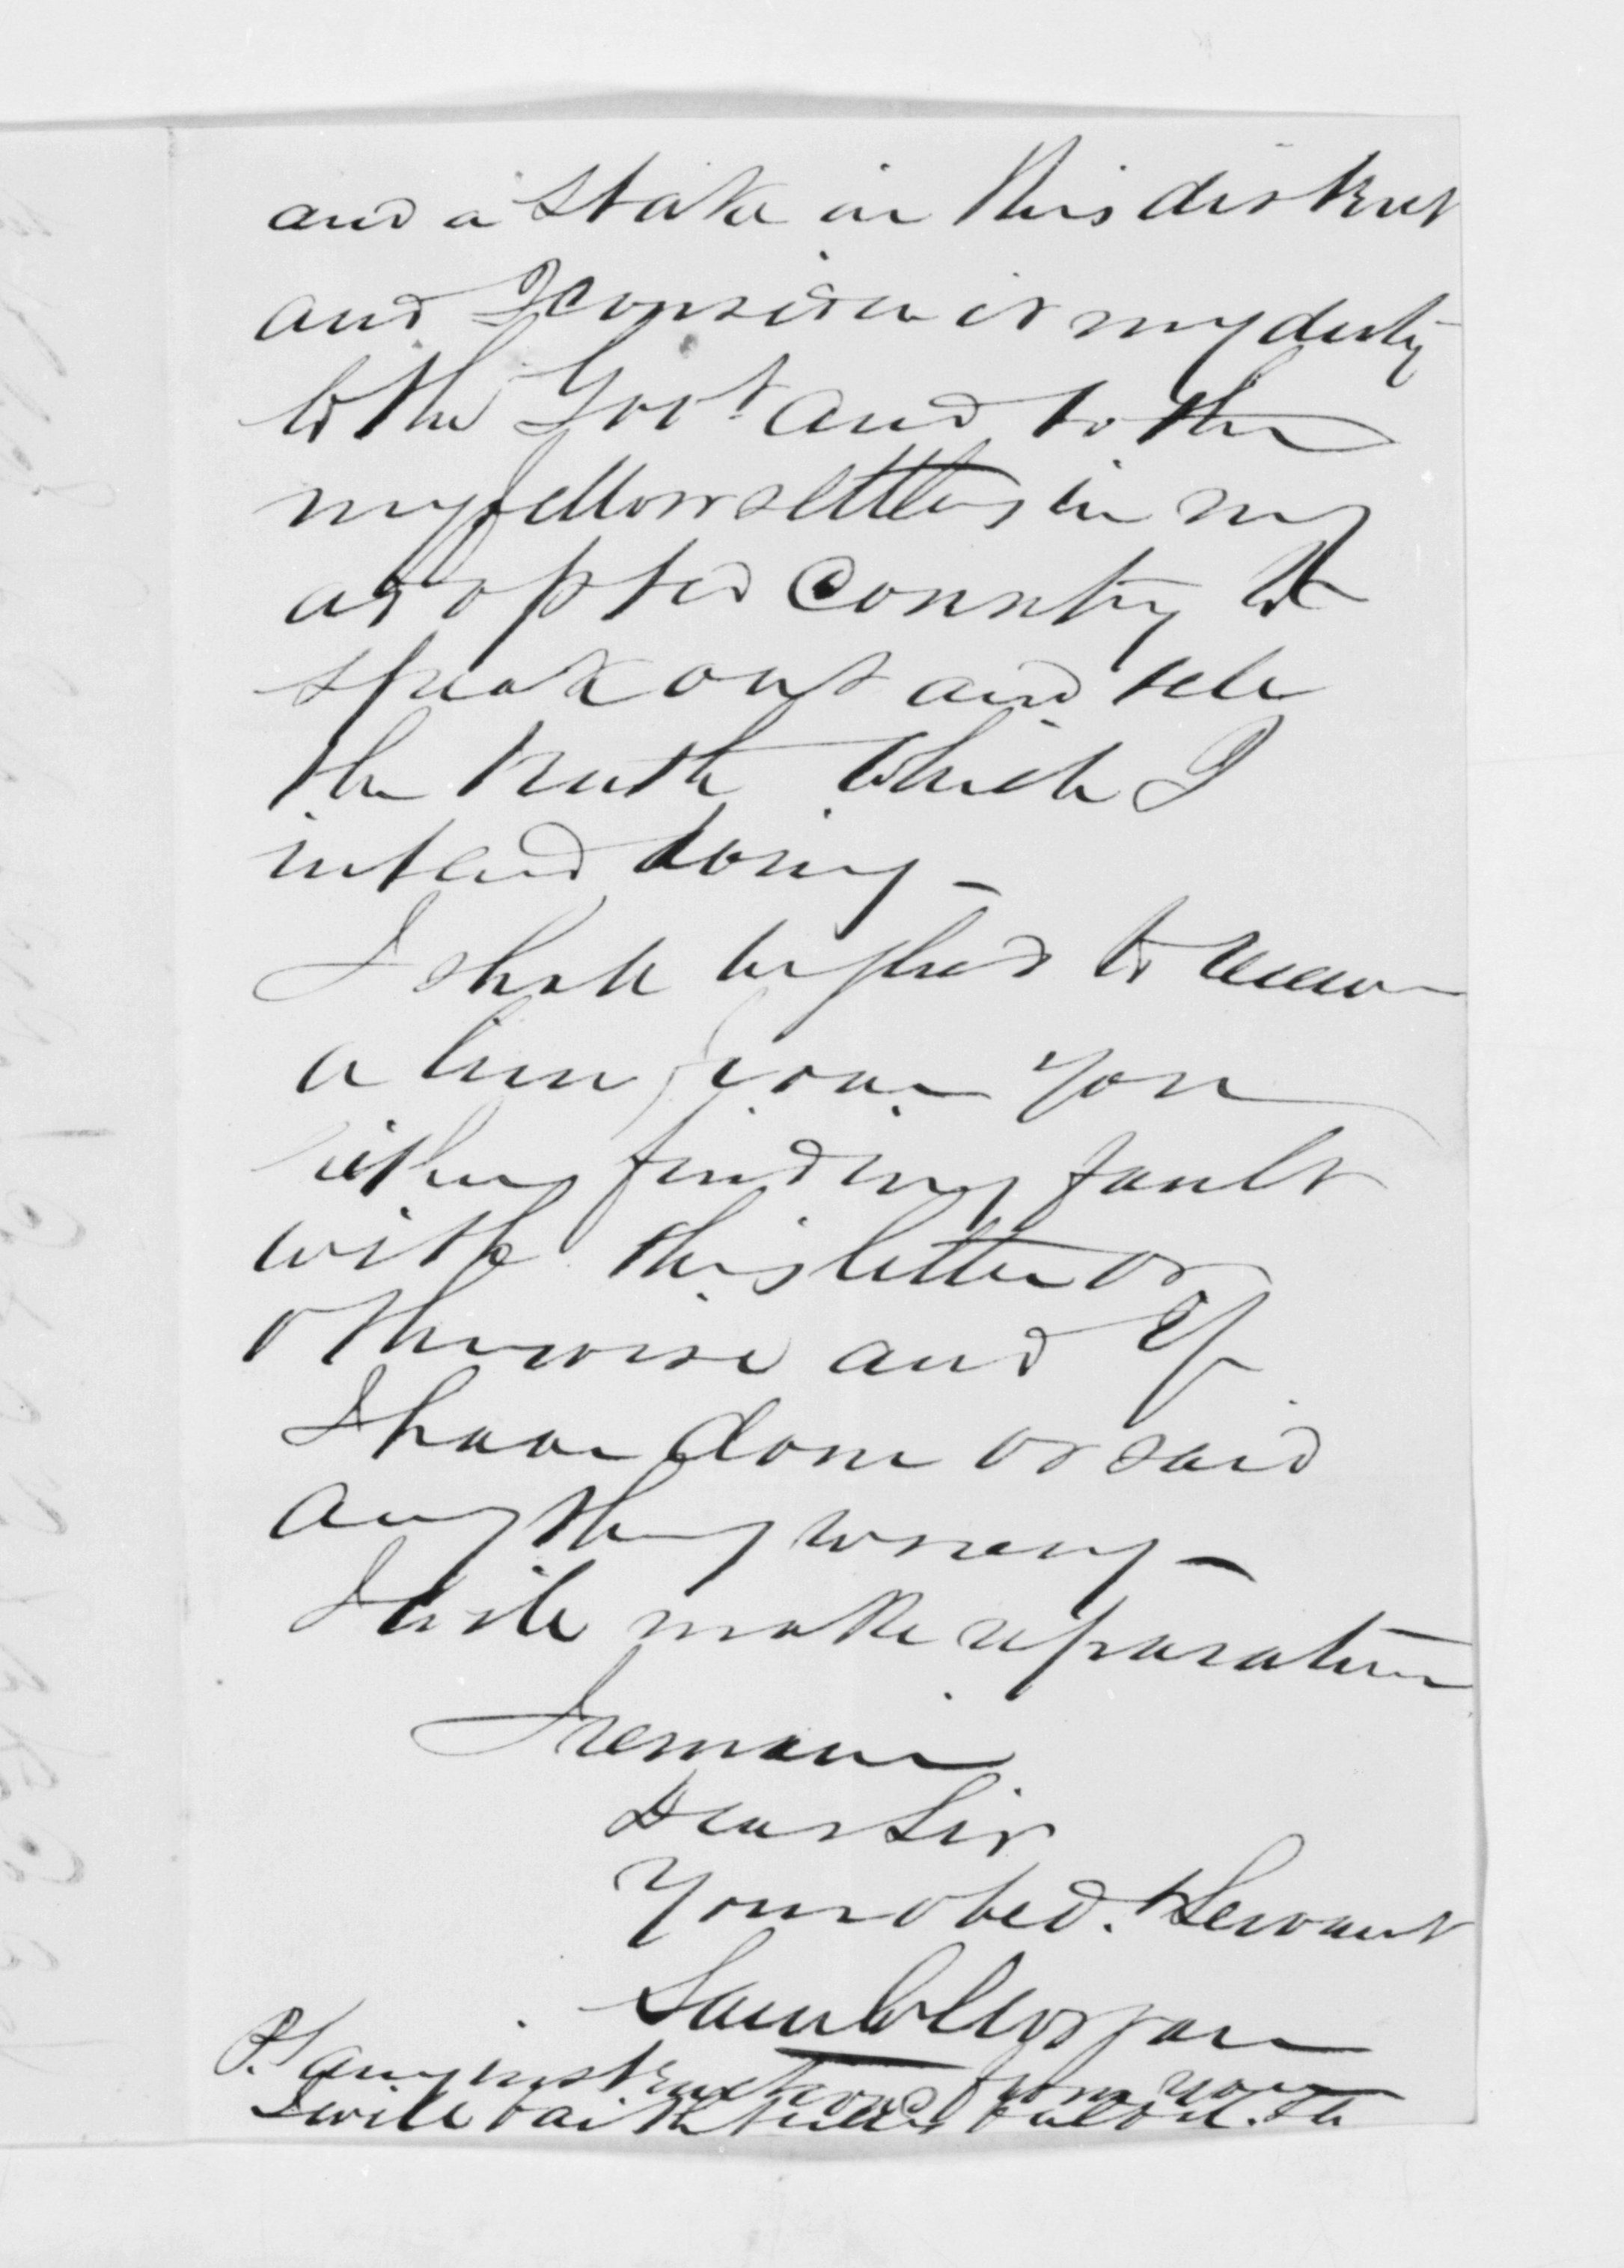 and a stake in this district
and I consider it my duty
to the Govt and to the
my fellow settlers in my
adopted country to
speak out and tell
the truth which I
intend doing –
I shall be glad to receive
a line from you
either finding fault
with this letter or
otherwise and if
I have done or said
anything wrong –
I will make reparation
I remain
Dear Sir
Your obedt Servant
Saml Morgan
P.S. any instructions from you
I will faithfully